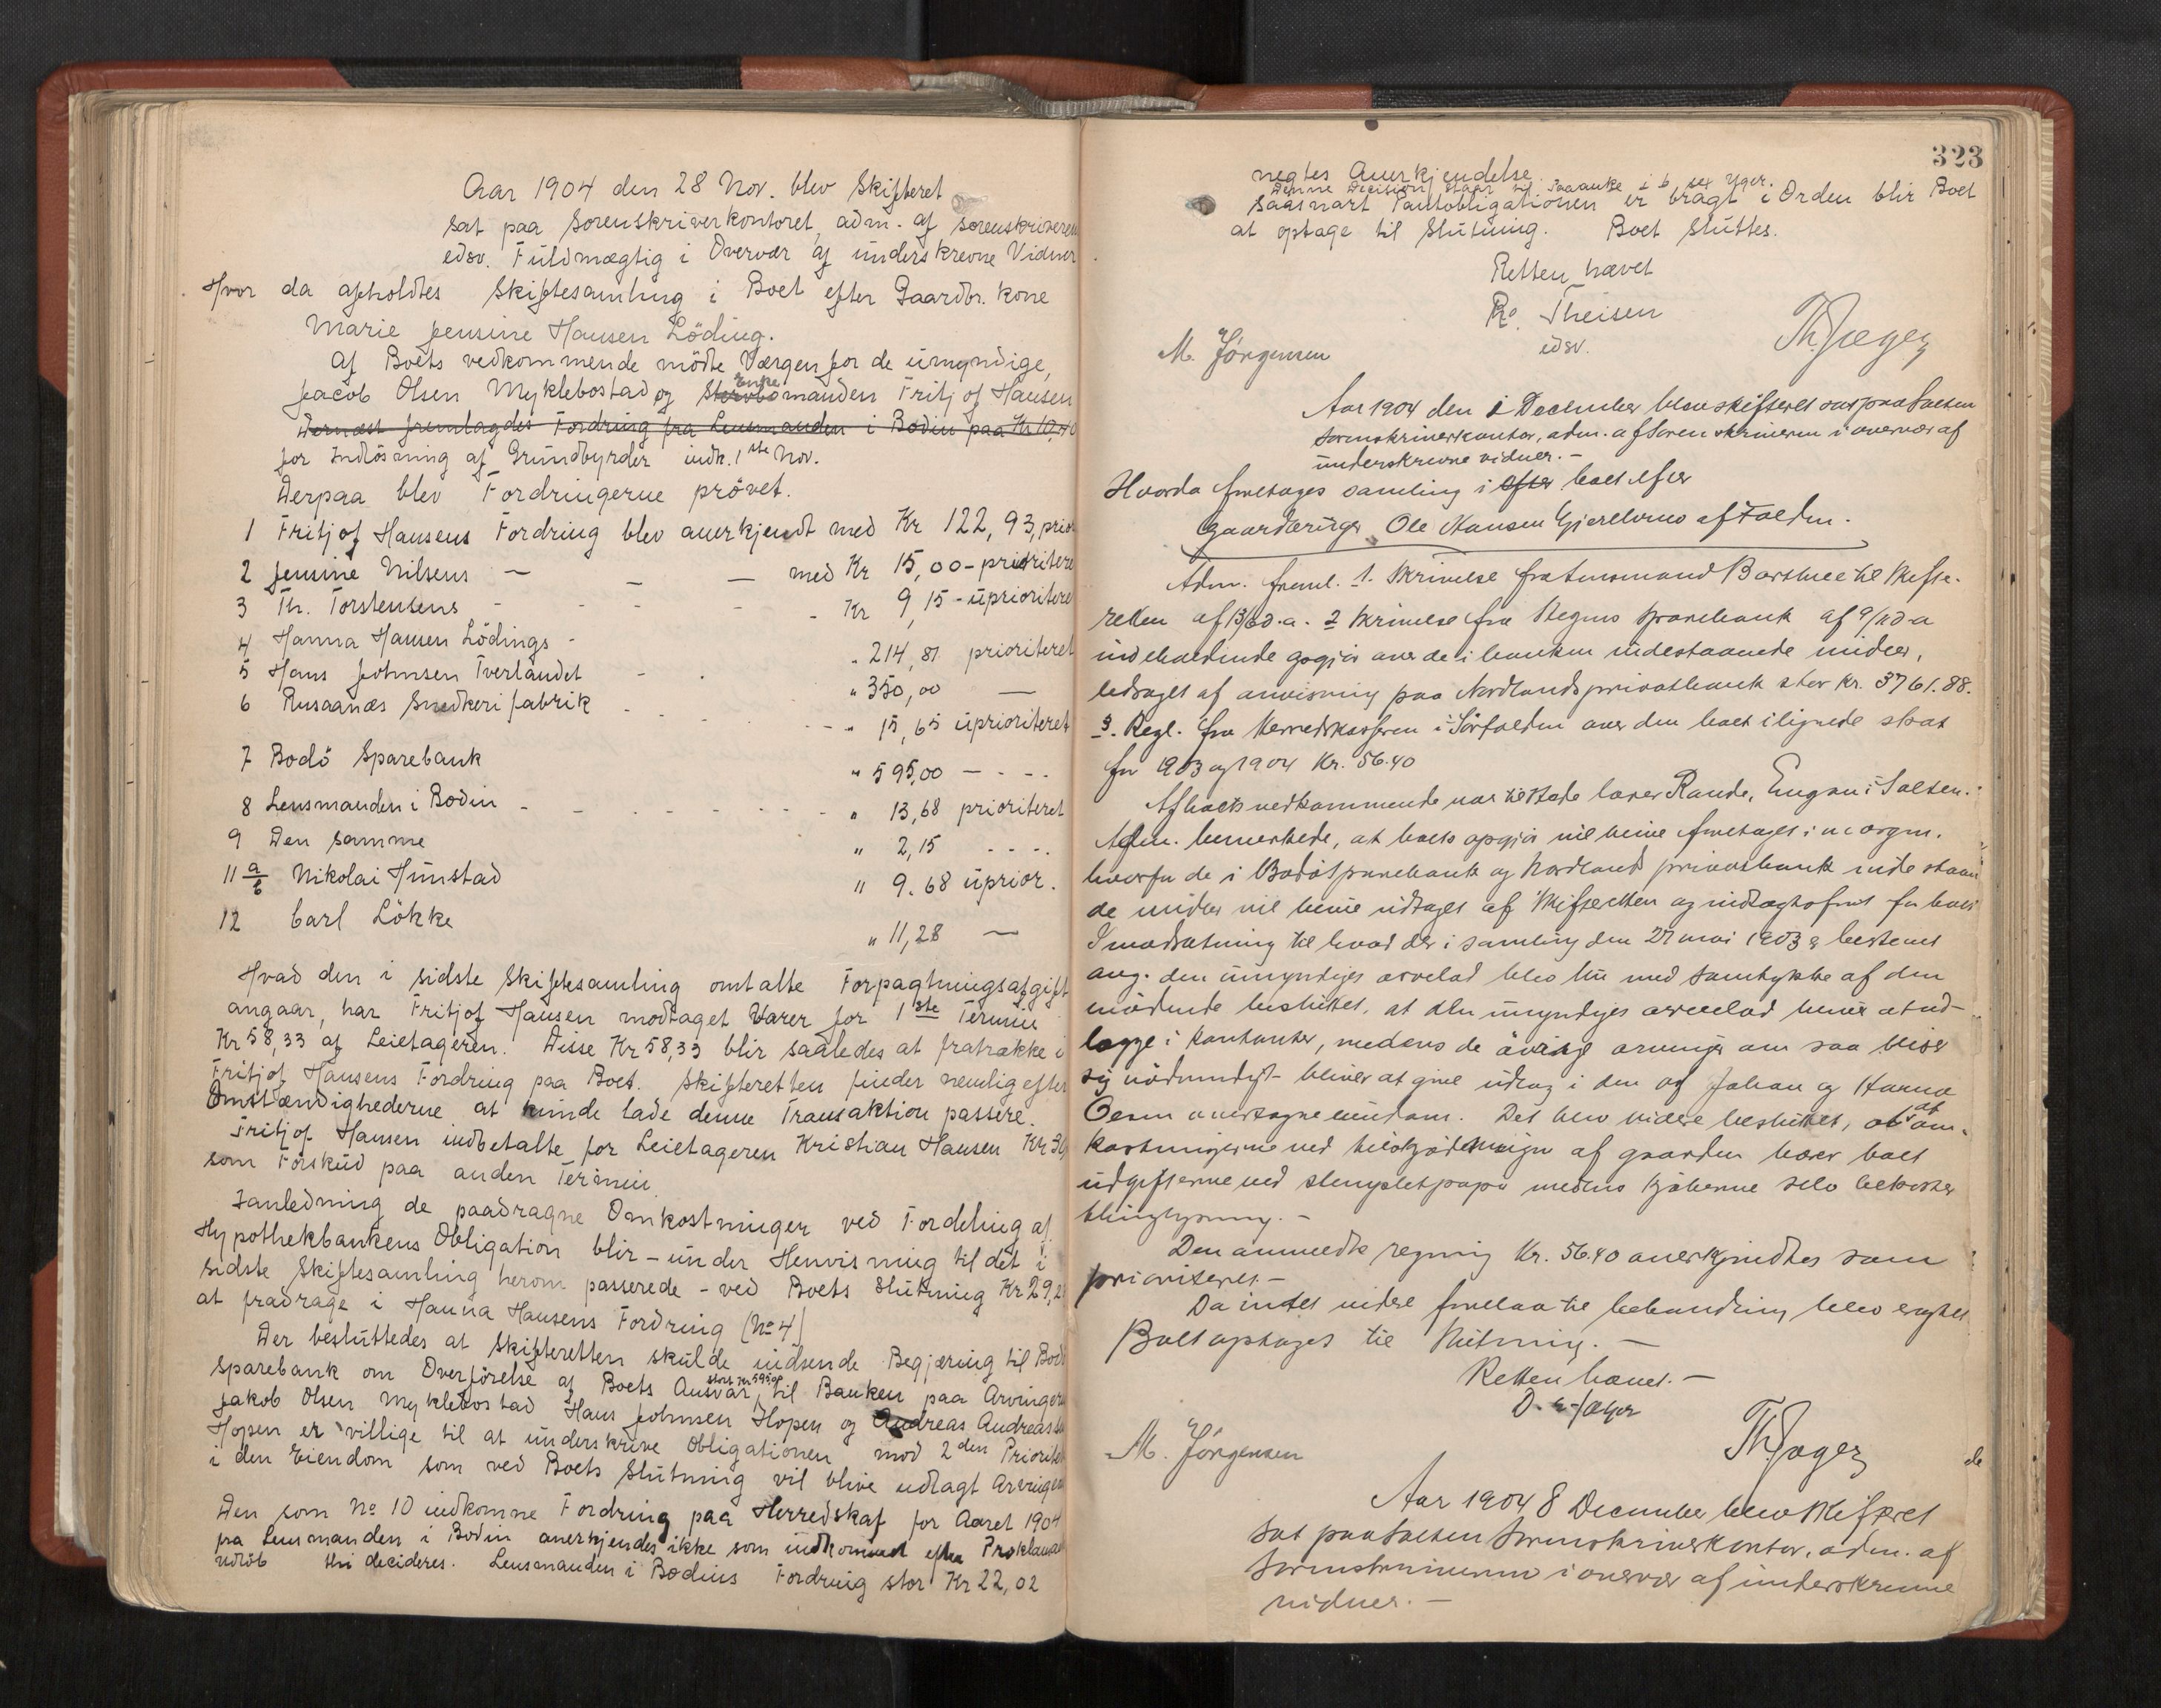 Aar 1904 den 28 Nov. blev Skifteret
sat paa Sorenskriverkontoret, adm. af Sorenskriveren
edsv. Fuldmægtig i Overvær af underskrevne Vidner
Hvor da afholdtes Skiftesamling i Boet efter Gaardbr. kone
Marie Jensine Hansen Löding.
Af Boets vedkommende mödte Værgen for de umyndige,
Jacob Olsen Myklebostad og Enkemanden Fritjof Hansen
Dernæst fremlagdes Fordring fra Lensmanden i Bodin paa Kr 10,40
for Indlösning af Grundbyrder indk. 1ste Nov.
Derpaa blev Fordringerne prövet.
1 Fritjof Hansens Fordring blev anerkjendt med Kr 122,93, prior
2 Jensine Nilsens — — — med Kr 15,00 - prioritere
3 Th. Torstensens - - - - Kr 9,15 - uprioritere
4 Hanna Hansen Lödings - " 214,81 prioriteret
5 Hans Johnsen Tverlandet - - " 350,00 —
6 Rusaanæs Snedkerifabrik - - - - " 15,65 uprioriteret
7 Bodö Sparebank " 595,00 — - - -
8 Lensmanden i Bodin - - - - - - " 13,68 prioriteret
9 Den samme " 2,15 - - - -
11 a/b Nikolai Hunstad " 9.68 uprior.
12 Carl Lökke " 11,28 —
Hvad den i sidste Skiftesamling omtalte Forpagtningsafgift
angaar, har Fritjof Hansen modtaget Varer for 1ste Termin
Kr 58,33 af Leietageren. Disse Kr 58,33 blir saaledes at fratrække i
Fritjof Hansens Fordring paa Boet. Skifteretten finder nemlig efter
Omstændighederne at kunde lade denne Transaktion passere.
Fritjof Hansen indbetalte for Leietageren Kristian Hansen Kr 30,
som Forskud paa anden Termin.
I anledning de paadragne Omkostninger ved Fordeling af
Hypothekbankens Obligation blir - under Henvisning til det i
sidste Skiftesamling herom passerede - ved Boets Slutning Kr 29,2
at fradrage i Hanna Hansens Fordring (No 4)
Der besluttedes at Skifteretten skulde indsende Begjæring til Bodö
Sparebank om Overförelse af Boets Ansvar, stort kr 595,00 til Banken paa Arvingern
Jakob Olsen Myklebostad Hans Johnsen Hopen og Andreas Andreassen
Hopen er villige til at underskrive Obligationen mod 2den Prioritet
i den Eiendom som ved Boets Slutning vil blive udlagt Arvingern
Den som No 10 indkomne Fordring paa Herredskat for Aaret 1904
fra Lensmanden i Bodin anerkjendes ikke som indkommet efter Proklamas
udlöb thi decideres. Lensmanden i Bodins Fordring stor Kr 22,02
323
negtes Anerkjendelse.
Denne Decision staar til Paaanke i 6 sex Uger.
Saasnart Pantobligationen er bragt i Orden blir Boet
at optage til Slutning. Boet sluttes.
Retten hævet
Ro. Theisen
edsv.
M. Jörgensen
Th. Jæger
Aar 1904 den 2 December blev skifteret sat paa Salten
sorenskriverkontor, adm. af sorenskriveren i overvær af
underskrevne vidner. -
Hvorda foretages samling i efter boet efter
Gaardbruger Ole Hansen Gjerelvnes af Folden.
Adm. freml. 1. Skrivelse fra lensmand Barstue til skifte-
retten af 13/6 d.a. 2 skrivelse fra Stegens sparebank af 9/11 d.a
indeholdende opgjör over de i banken indestaaende midler,
ledsaget af anvisning paa Nordlands privatbank stor Kr. 3761.88.
3. Regl. fra Herredskasseren i Sörfolden over den boet ilignede skat
for 1903 og 1904 Kr. 56.40
Af boets vedkommende var tilstede lærer Rande, Engan i Salten.
Adm. bemerkede, at boets opgjör vil blive foretaget i morgen.
hvorfor de i Bodö sparebank og Nordland privatbank indestaaen
de midler vil blive udtaget af skifteretten og indtægtsfört for boet
I modsætning til hvad der i samling den 27 mai 1903 er bestemt
ang. den umyndiges arvelod blev nu med samtykke af den
mödende besluttet, at den umyndiges arvelod bliver at ud-
lægge i kontanter, medens de övrige arvinger om saa viser
sig nödvendigt bliver at give udlæg i den af Johan og Hanna
Olsen overtagne eiendom. Det blev videre besluttet, at af om-
kostningerne ved tilskjödningen af gaarden bærer boet
udgifterne ved stemplet papir medens kjöberne selv bekoster
thinglysning. -
Den anmeldte regning Kr. 56.40 anerkjendtes som
prioriteret. -
Da intet videre forelaa til behandling blev
Boet optages til slutning. -
Retten hævet. -
D. E. Jæger
M. Jörgensen
Th. Jæger
de
Aar 1904 8 December blev skifteret
sat paa Salten sorenskriverkontor, adm. af
sorenskriveren i overvær af underskrevne
vidner. -